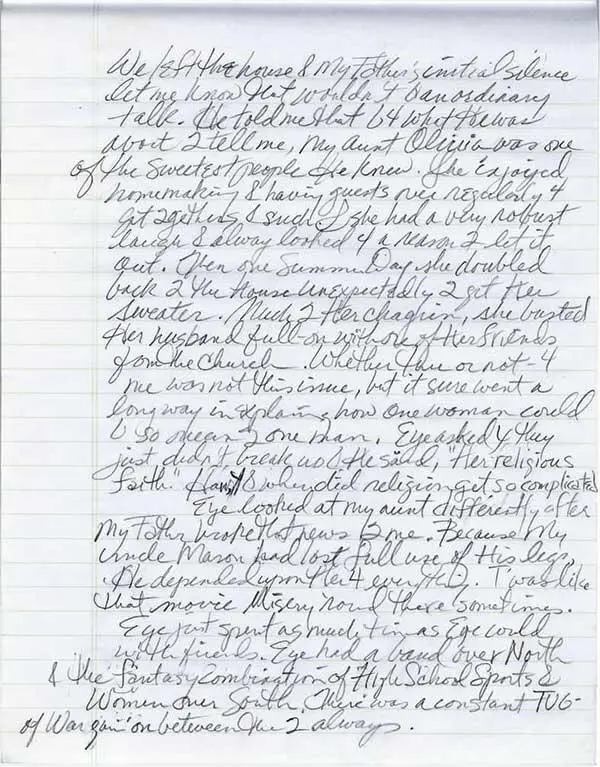 We left the house & My Father's initial silence
let me know that wouldn't b an ordinary
talk. He told me that b4 what He was
about 2 tell me, my aunt Olivia was one
of the sweetest people He knew. She enjoyed
homemaking & having guests over regularly 4
get 2gethers & such. She had a very robust
laugh & alway looked 4 a reason 2 let it
out. Then one Summer Day she doubled
back 2 the House unexpectedly 2 get Her
sweater. Much 2 Her chagrin, she busted
Her husband full-on with one of Her friends
from the church. Whether true or not - 4
me was not this issue, but it sure went a
long way in explain how one woman could
b so mean 2 one man. Eye asked y they
just didn't break up & He said, "Her religious
faith." & when did religion get so complicated
Eye looked at my aunt differently after
My Father broke that news 2 me. Because My
Uncle Mason had lost full use of His legs,
He depended upon Her 4 everything. Twas like
that movie Misery round there sometimes.
Eye just spent as much time as Eye could
with friends. Eye had a band over North
& the fantasy combination of High School Sports &
Women over South. There was a constant TUG-
of War goin' on between the 2 always.